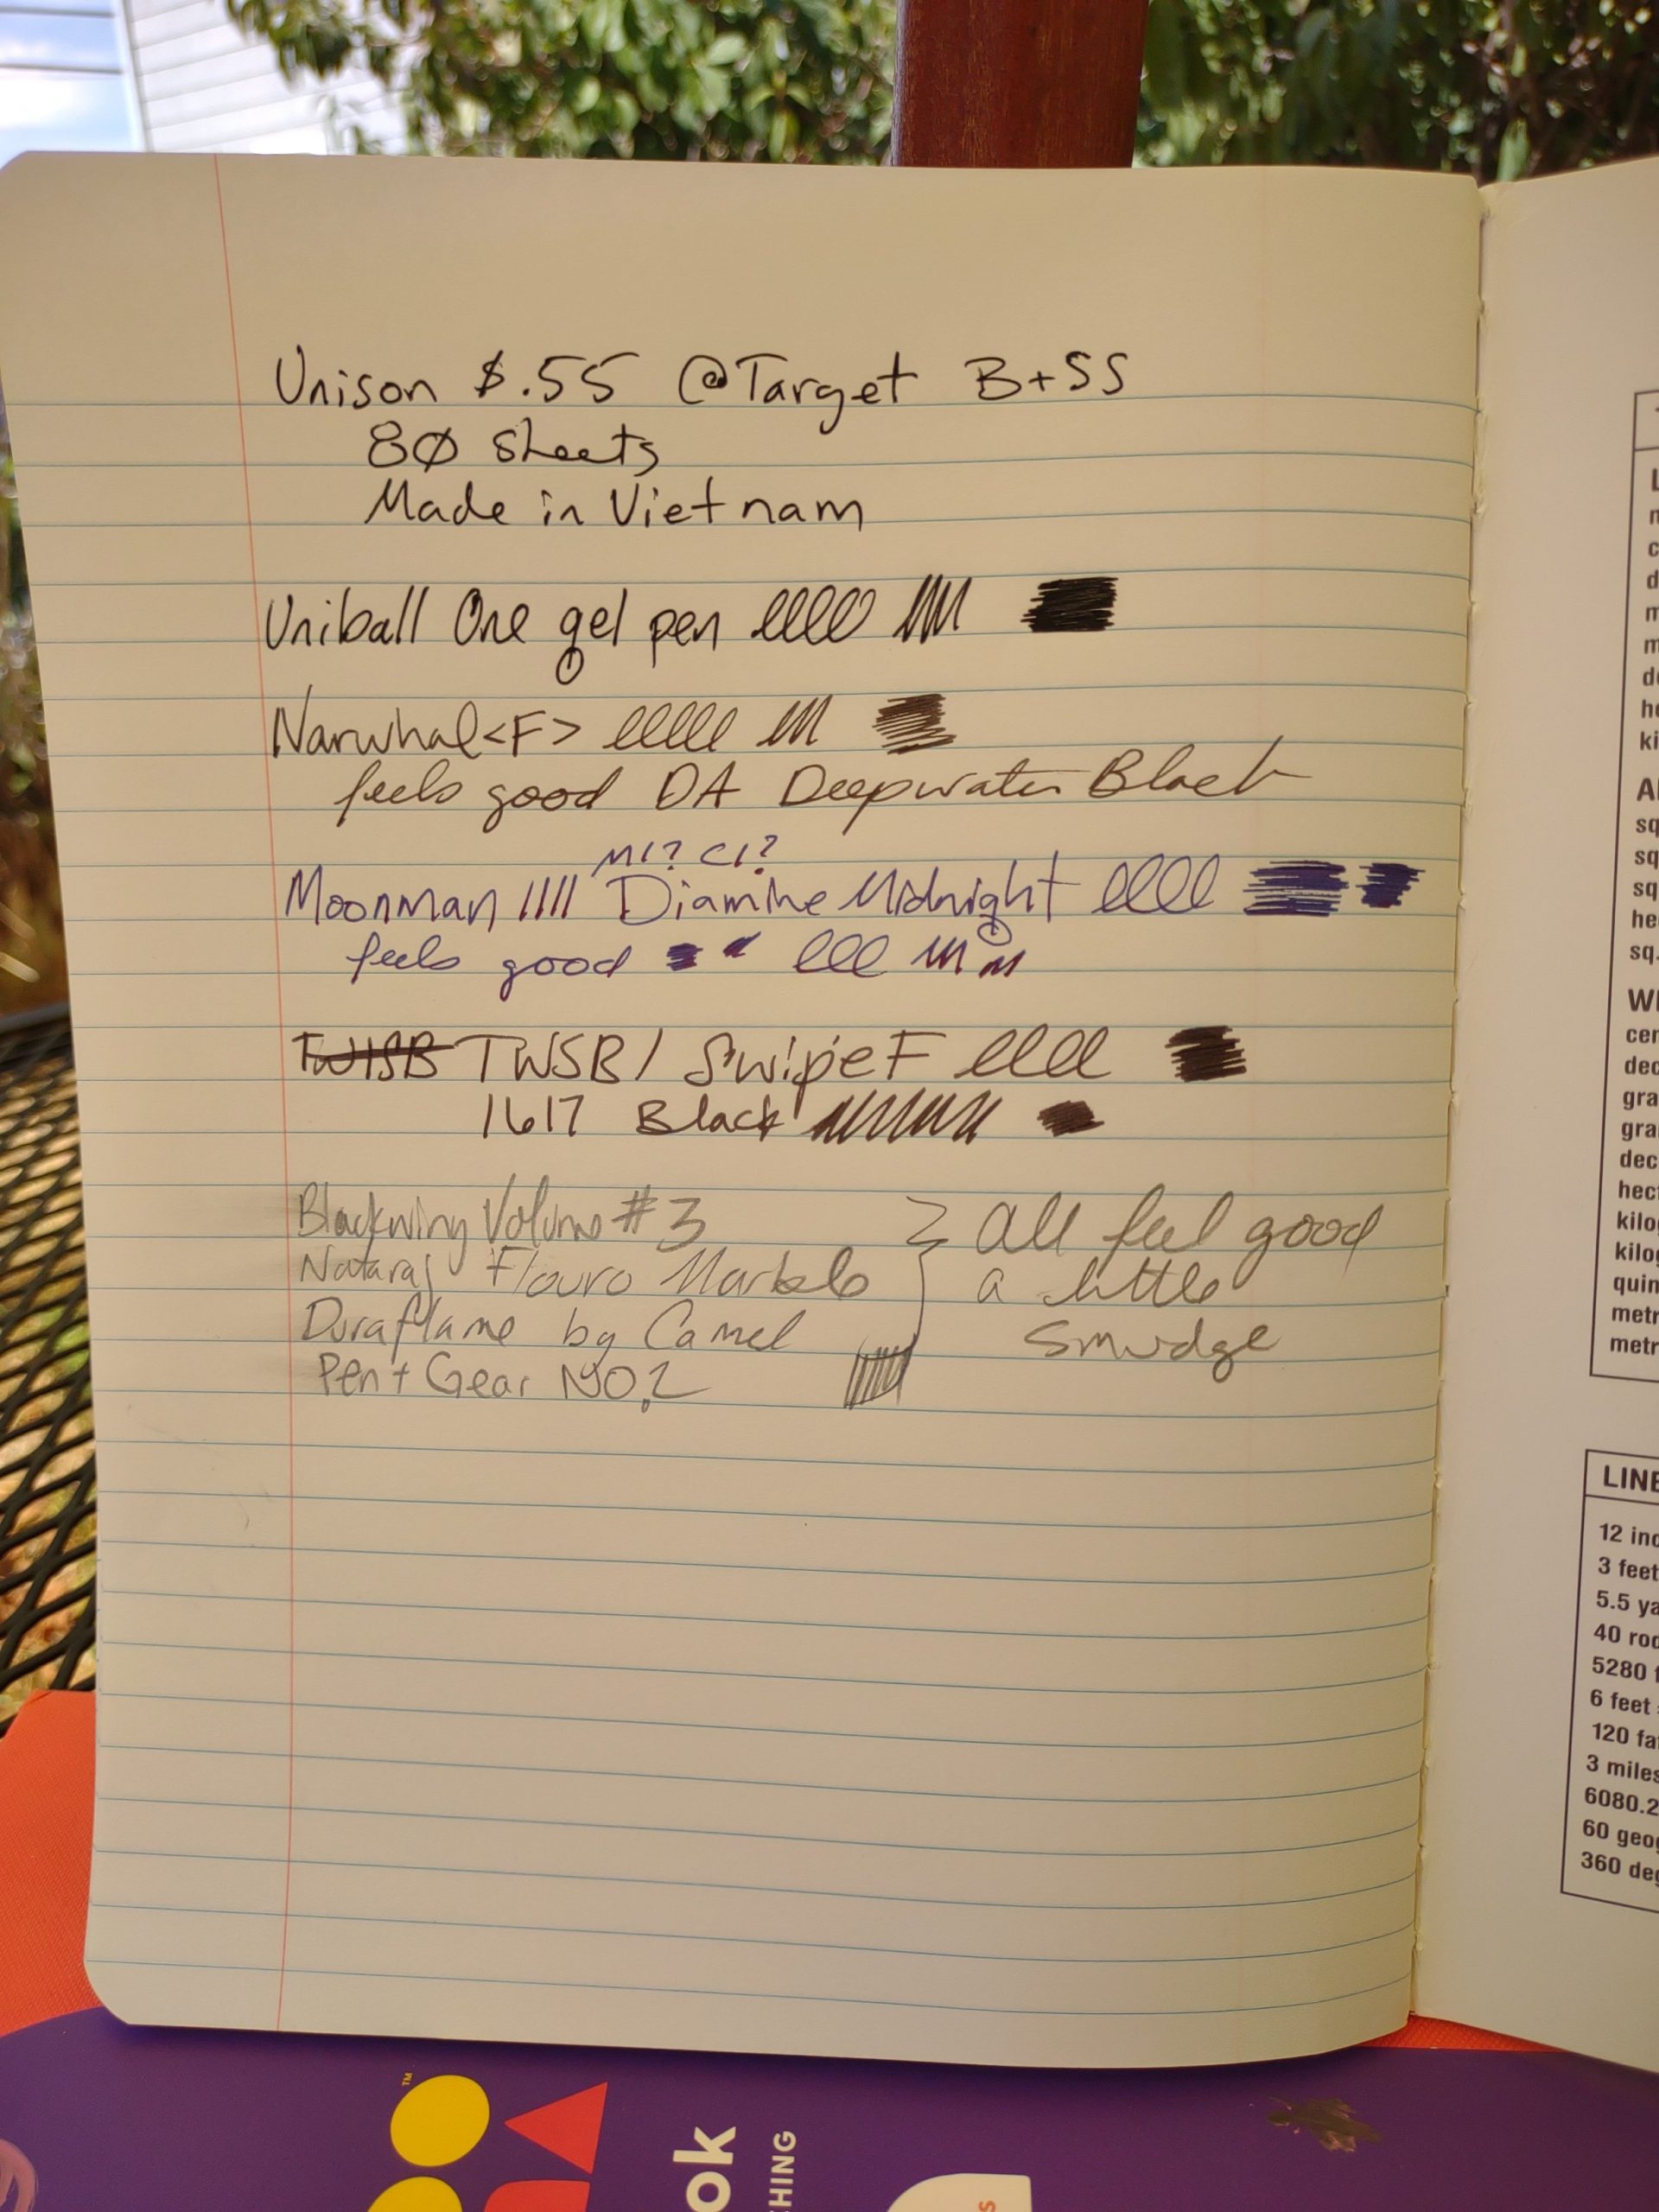 Unison $.55 @Target B+SS
80 sheets
Made in Vietnam
Uniball One gel pen
Narwhal <F>
feels good DA Deepwater Black
M1? C1?
Moonman Diamine Midnight
feels good
TWISB TWSBI Swipe F
1617 Black
Blackwing Volume #3
Nataraj Flouro Marble
Duraflame by Camel
Pen+Gear NO.2
All feel good
a little
smudge
LINE
12 inc
3 feet
5.5 ya
40 rod
5280 f
6 feet
120 fat
3 miles
6080.2
60 geog
360 deg
cen
dec
gra
gra
dec
hect
kilog
kilog
quin
metr
metr
TM
ok
HING